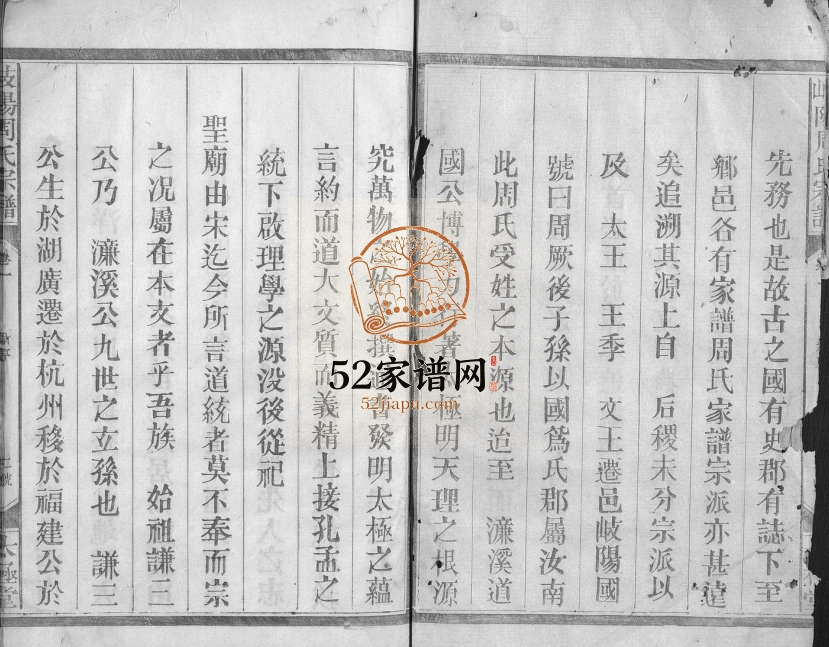 先務也是故古之國有史郡有誌下至
鄉邑各有家譜周氏家譜宗派亦甚遠
矣追溯其源上自 后稷未分宗派以
及 太王 王季 文王遷邑岐陽國
號曰周厥後子孫以國爲氏郡屬汝南
此周氏受姓之本源也迨至 濂溪道
國公博學力 著 極明天理之根源
究萬物 始 撰 書發明太極之蘊
言約而道大文質而義精上接孔孟之
統下啟理學之源没後從祀
聖廟由宋迄今所言道統者莫不奉而宗
之况屬在本支者乎吾族 始祖謙三
公乃 濂溪公九世之玄孫也 謙三
公生於湖廣遷於杭州移於福建公於
岐陽周氏宗譜
卷一
太極堂
52家谱网
52jiapu.com